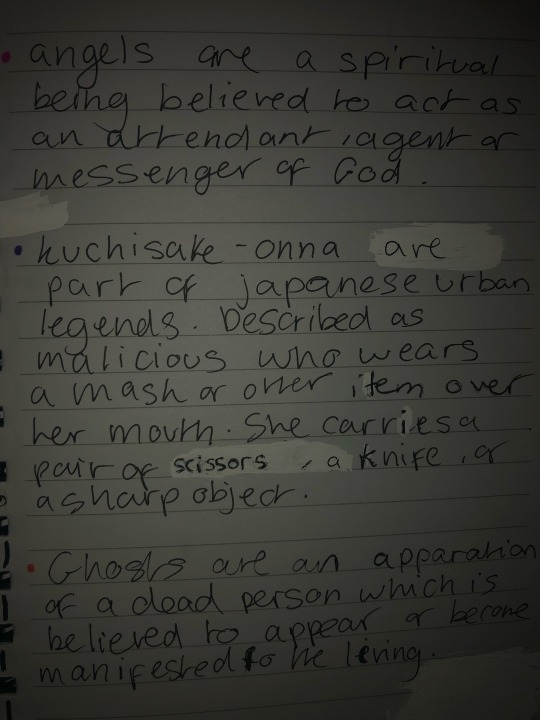 angels are a spiritual
being believed to act as
an attendant, agent or
messenger of God.
kuchisake-onna are
part of japanese urban
legends. Described as
malicious who wears
a mask or other item over
her mouth. She carries a
pair of scissors, a knife, or
a sharp object.
Ghosts are an apparation
of a dead person which is
believed to appear or become
manifested to the living.